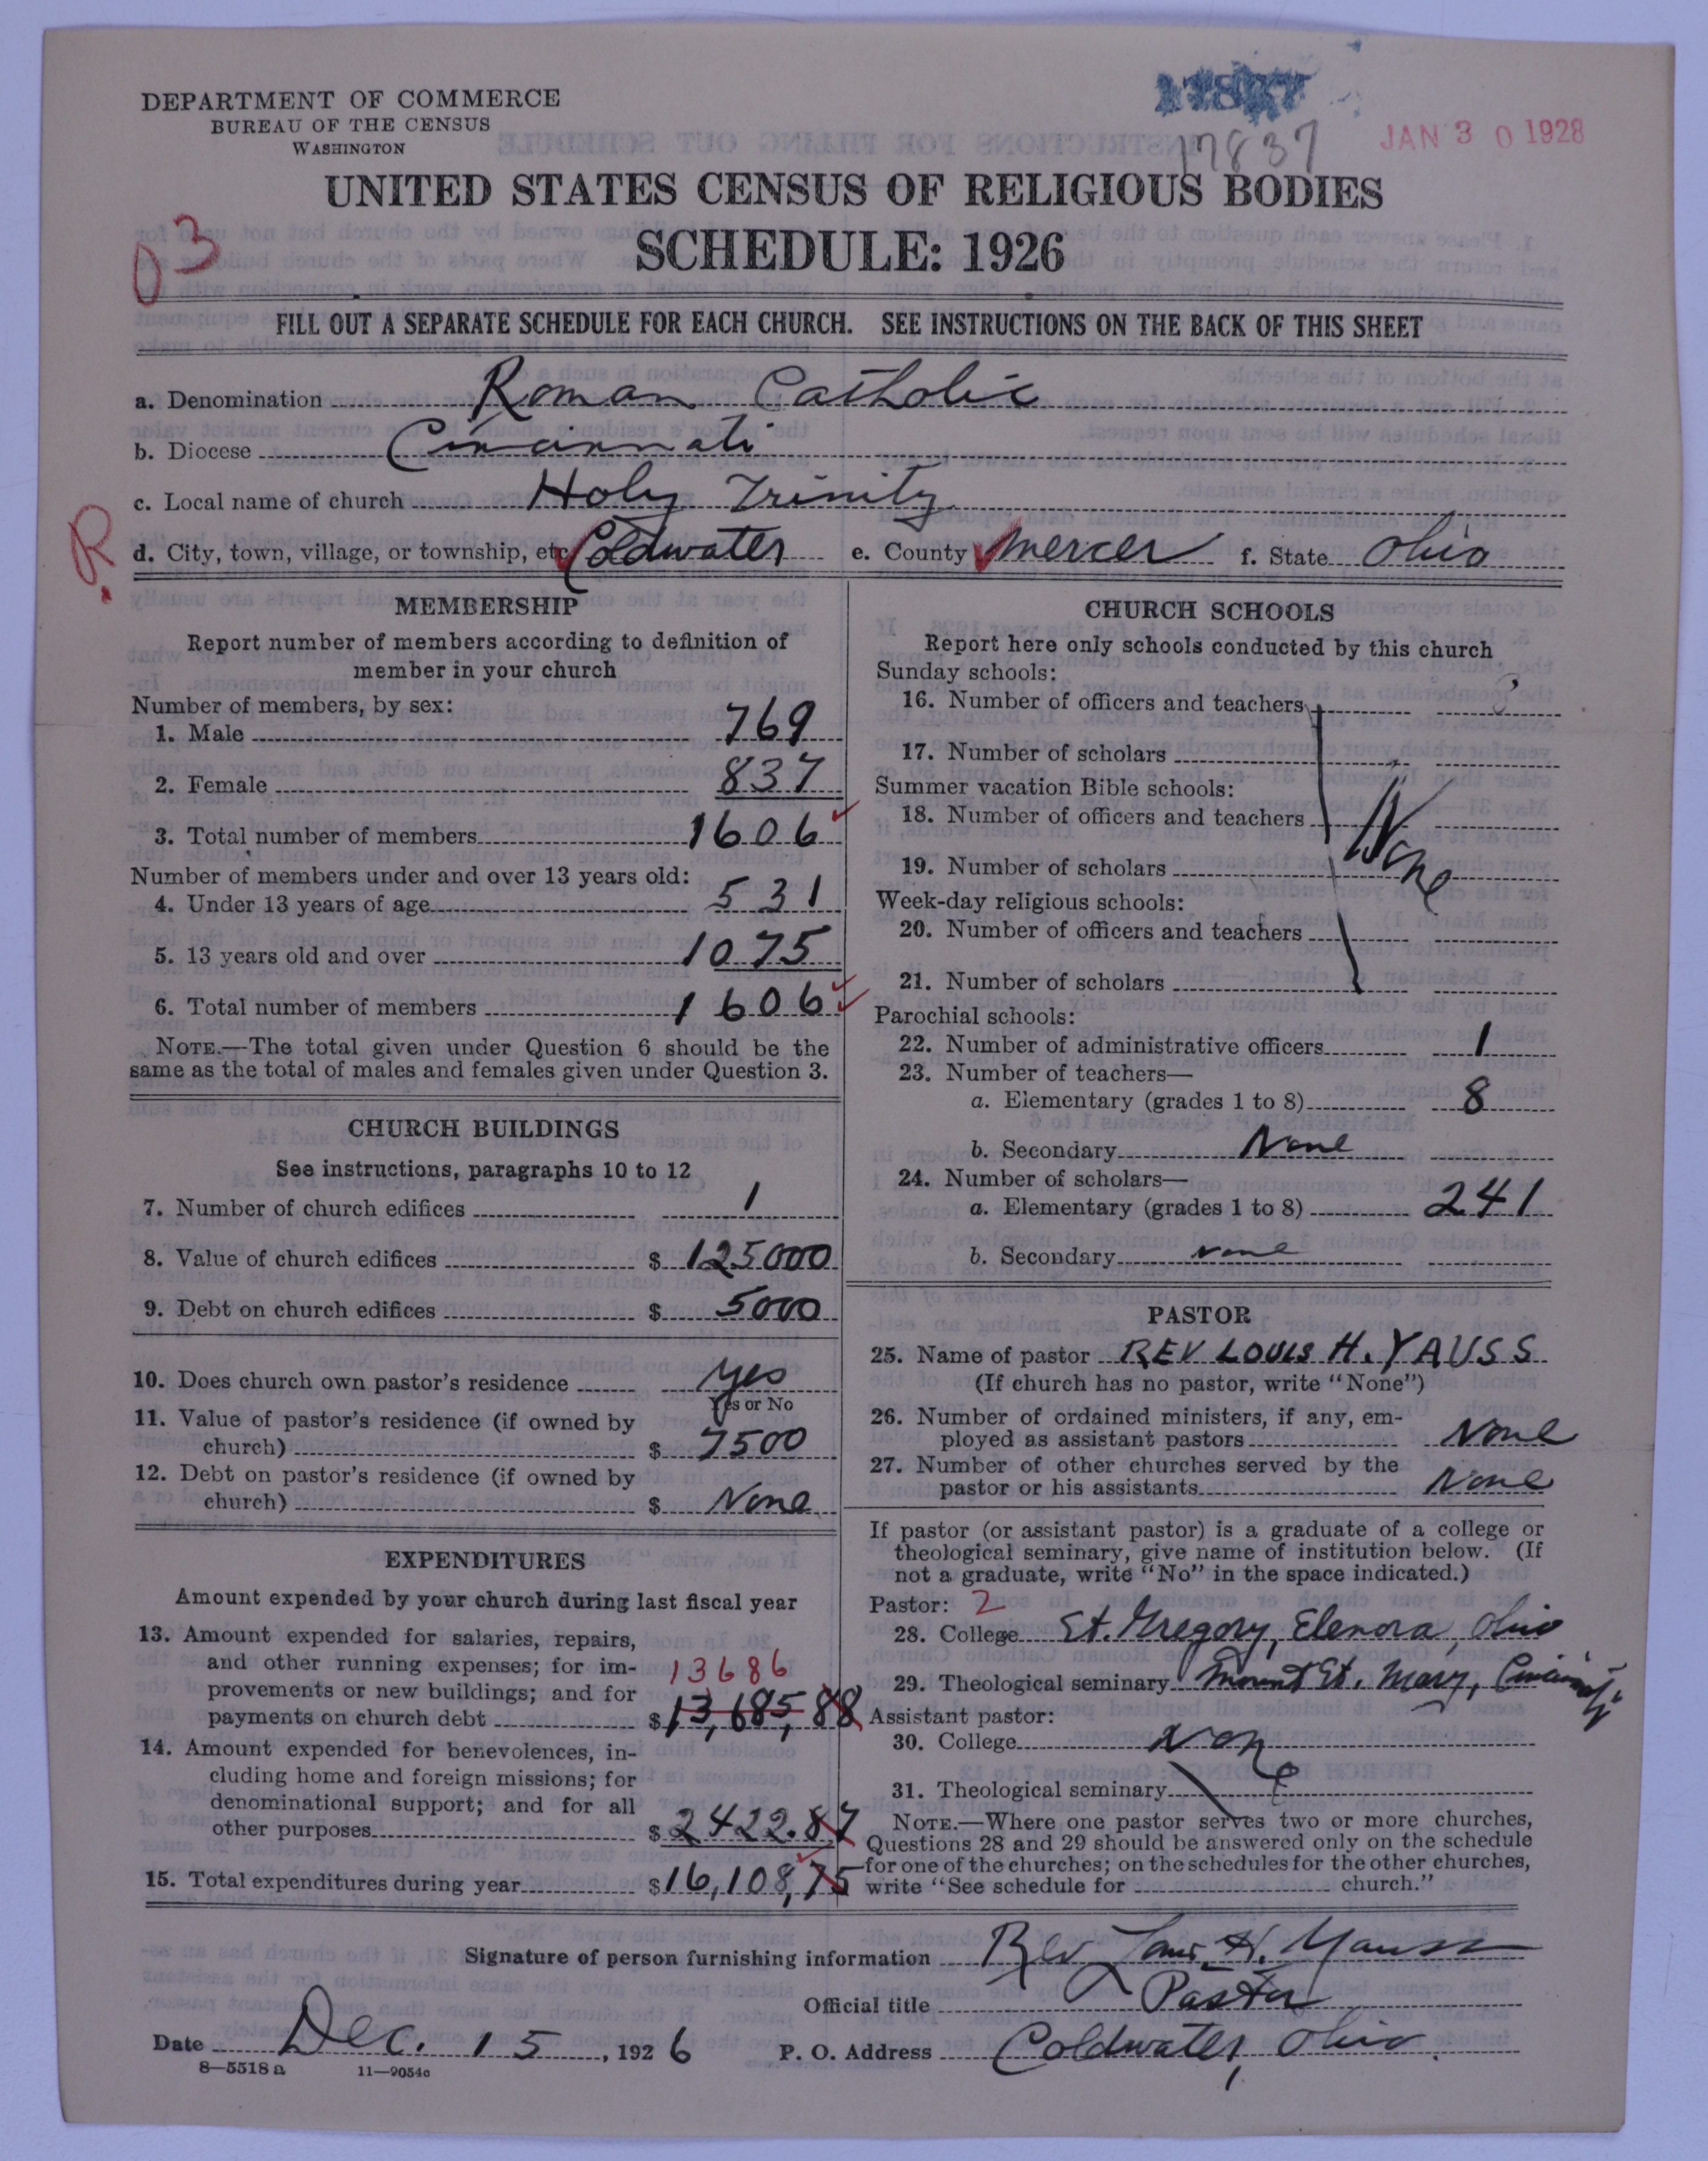 DEPARTMENT OF COMMERCE
BUREAU OF THE CENSUS
WASHINGTON
17837
JAN 30 1928
UNITED STATES CENSUS OF RELIGIOUS BODIES
03
SCHEDULE: 1926
FILL OUT A SEPARATE SCHEDULE FOR EACH CHURCH. SEE INSTRUCTIONS ON THE BACK OF THIS SHEET
a. Denomination Roman Catholic
b. Diocese Cincinnati
c. Local name of church Holy Trinity
R.
d. City, town, village, or township, etc. Coldwater e. County Mercer f. State Ohio
MEMBERSHIP
Report number of members according to definition of
member in your church
Number of members, by sex:
1. Male 769
2. Female 837
3. Total number of members 1606
Number of members under and over 13 years old:
4. Under 13 years of age 531
5. 13 years old and over 1075
6. Total number of members 1606
NOTE.—The total given under Question 6 should be the
same as the total of males and females given under Question 3.
CHURCH BUILDINGS
See instructions, paragraphs 10 to 12
7. Number of church edifices 1
8. Value of church edifices $ 125000
9. Debt on church edifices $ 5000
10. Does church own pastor's residence yes
Yes or No
11. Value of pastor's residence (if owned by
church) $ 7500
12. Debt on pastor's residence (if owned by
church) $ None
EXPENDITURES
Amount expended by your church during last fiscal year
13. Amount expended for salaries, repairs,
and other running expenses; for im- 13686
provements or new buildings; and for
payments on church debt $ 13,685,88
14. Amount expended for benevolences, in-
cluding home and foreign missions; for
denominational support; and for all
other purposes $ 2422.87
15. Total expenditures during year $ 16,108,75
CHURCH SCHOOLS
Report here only schools conducted by this church
Sunday schools:
16. Number of officers and teachers
17. Number of scholars
Summer vacation Bible schools:
18. Number of officers and teachers None
19. Number of scholars
Week-day religious schools:
20. Number of officers and teachers
21. Number of scholars
Parochial schools:
22. Number of administrative officers 1
23. Number of teachers—
a. Elementary (grades 1 to 8) 8
b. Secondary None
24. Number of scholars—
a. Elementary (grades 1 to 8) 241
b. Secondary none
PASTOR
25. Name of pastor REV LOUIS H. YAUSS
(If church has no pastor, write "None")
26. Number of ordained ministers, if any, em-
ployed as assistant pastors None
27. Number of other churches served by the
pastor or his assistants None
If pastor (or assistant pastor) is a graduate of a college or
theological seminary, give name of institution below. (If
not a graduate, write "No" in the space indicated.)
Pastor: 2
28. College St. Gregory, Elenora, Ohio
29. Theological seminary Mount St. Mary, Cincinnati
Assistant pastor:
30. College None
31. Theological seminary
NOTE.—Where one pastor serves two or more churches,
Questions 28 and 29 should be answered only on the schedule
for one of the churches; on the schedules for the other churches,
write "See schedule for church."
Signature of person furnishing information Rev Louis H. Yauss
Official title Pastor
Date Dec. 15, 1926 P. O. Address Coldwater, Ohio.
8—5518 a 11—9054c